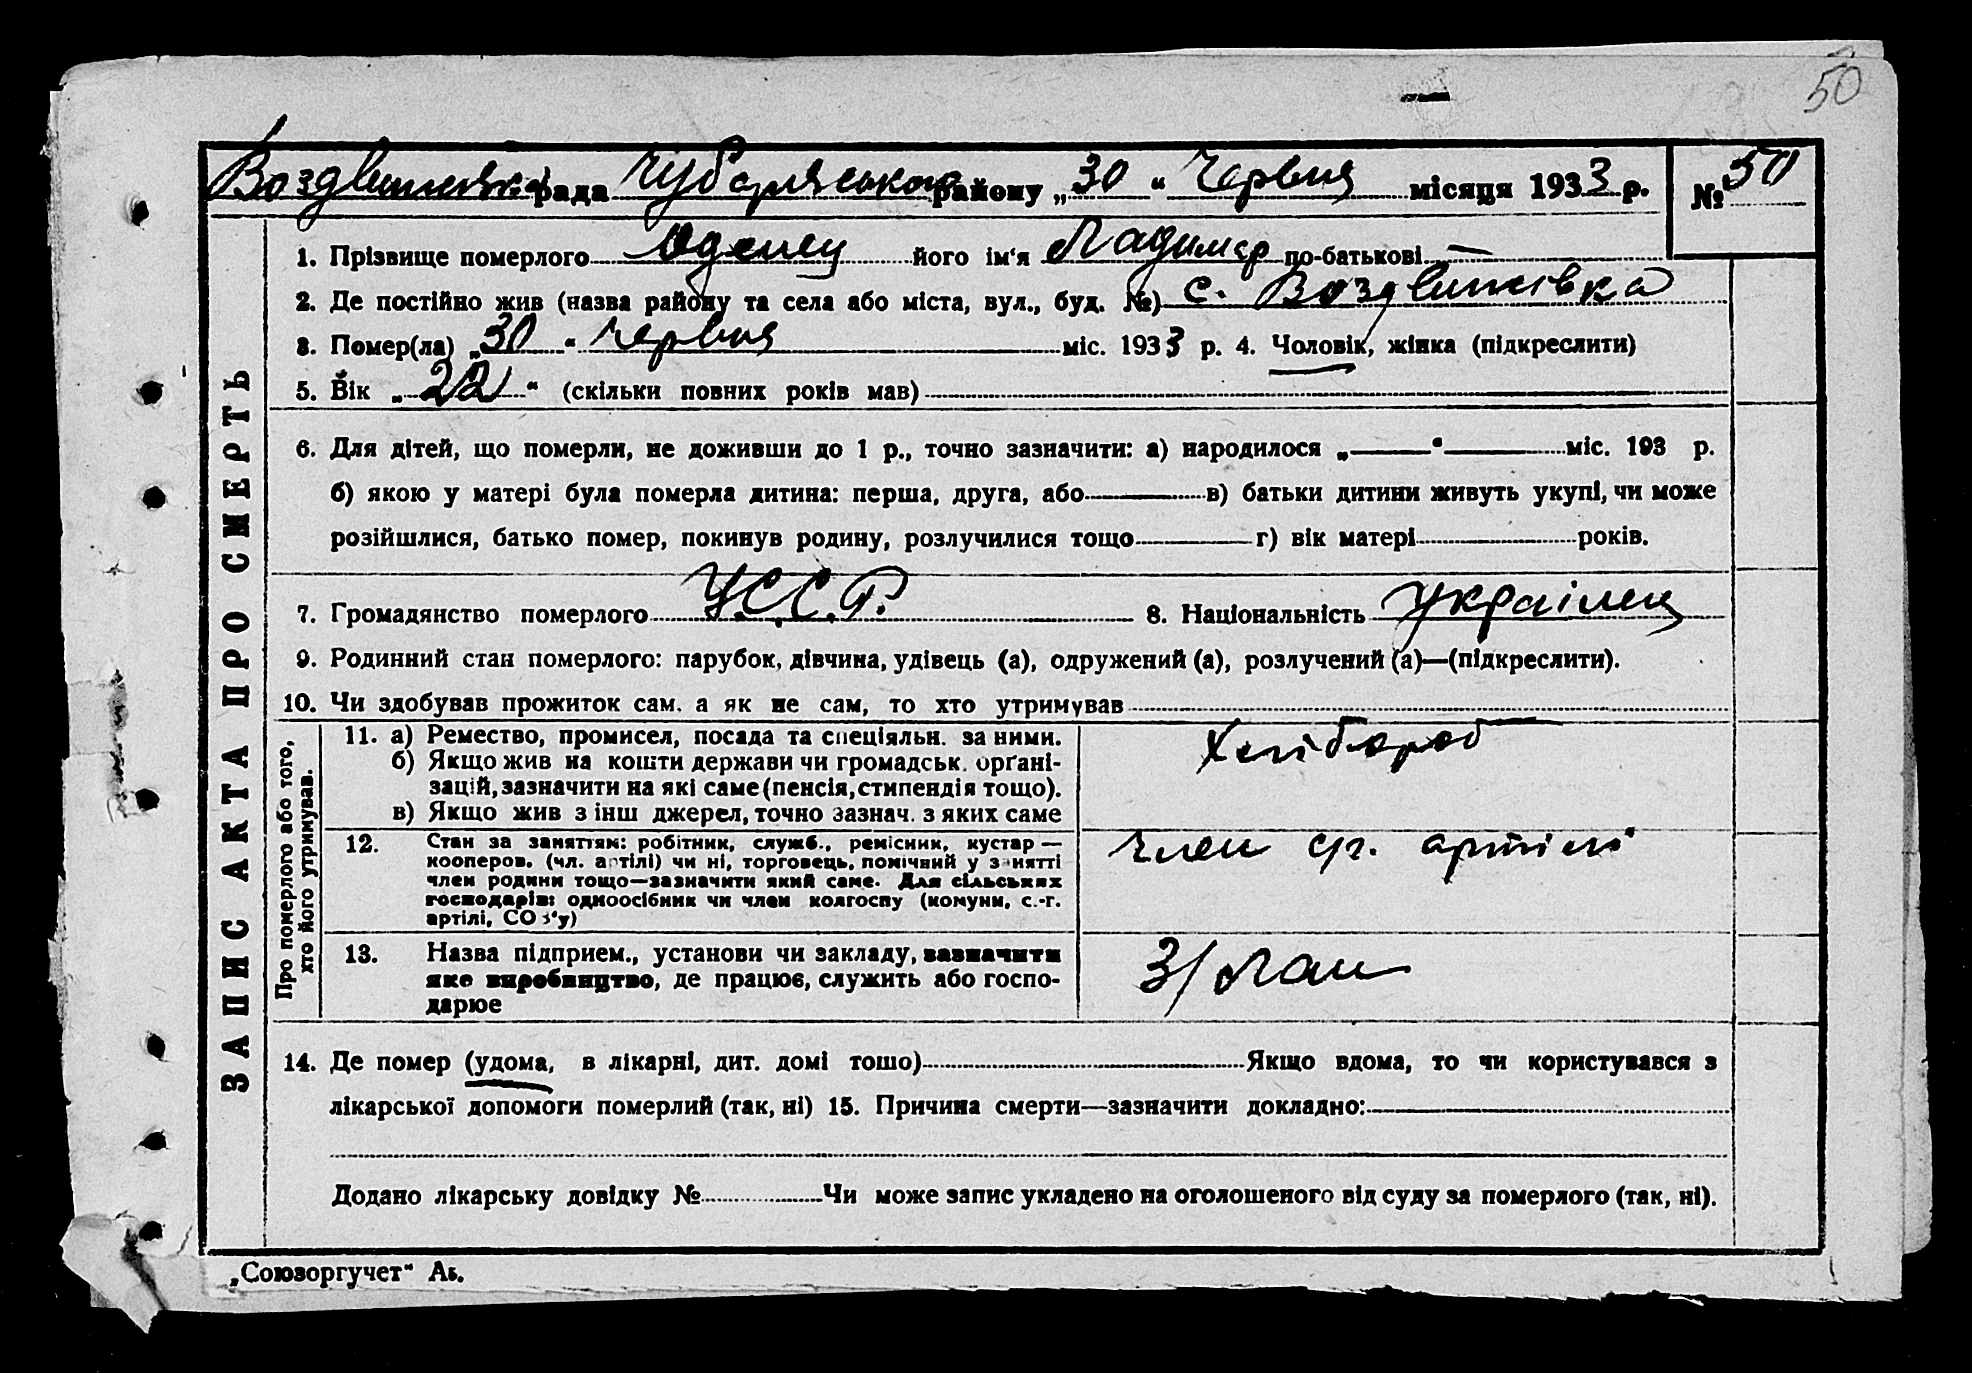 50
Воздвижівка рада Чубарівського району „30“ Червня місяця 1933 р. № 50
ЗАПИС АКТА ПРО СМЕРТЬ
1. Прізвище померлого його ім'я по-батькові —
2. Де постійно жив (назва району та села або міста, вул., буд. №) с. Воздвижівка
3. Помер(ла) „30“ червня міс. 1933 р. 4. Чоловік, жінка (підкреслити)
5. Вік „22“ (скільки повних років мав)
6. Для дітей, що померли, не доживши до 1 р., точно зазначити: а) народилося „—“— міс. 193 р.
б) якою у матері була померла дитина: перша, друга, або — в) батьки дитини живуть укупі, чи може
розійшлися, батько помер, покинув родину, розлучилися тощо — г) вік матері — років.
7. Громадянство померлого У.С.С.Р. 8. Національність Українец
9. Родинний стан померлого: парубок, дівчина, удівець (а), одружений (а), розлучений (а)—(підкреслити).
10. Чи здобував прожиток сам, а як не сам, то хто утримував
Про померлого або того,
хто його утримував.
11. а) Ремество, промисел, посада та спеціяльн. за ними.
б) Якщо жив на кошти держави чи громадськ. орґані-
зацій, зазначити на які саме (пенсія, стипендія тощо).
в) Якщо жив з інш джерел, точно зазнач. з яких саме
Хлібороб
12. Стан за заняттям: робітник, служб., ремісник, кустар —
кооперов. (чл. артілі) чи ні, торговець, помічний у занятті
член родини тощо—зазначити який саме. Для сільських
господарів: одноосібник чи член колгоспу (комуни, с.-г.
артілі, СОЗ'у)
член с/г. артілі
13. Назва підприєм., установи чи закладу, зазначити
яке виробництво, де працює, служить або госпо-
дарює
З/лан
14. Де помер (удома, в лікарні, дит. домі тошо) Якщо вдома, то чи користувався з
лікарської допомоги померлий (так, ні) 15. Причина смерти—зазначити докладно:
Додано лікарську довідку № Чи може запис укладено на оголошеного від суду за померлого (так, ні).
„Союзоргучет“